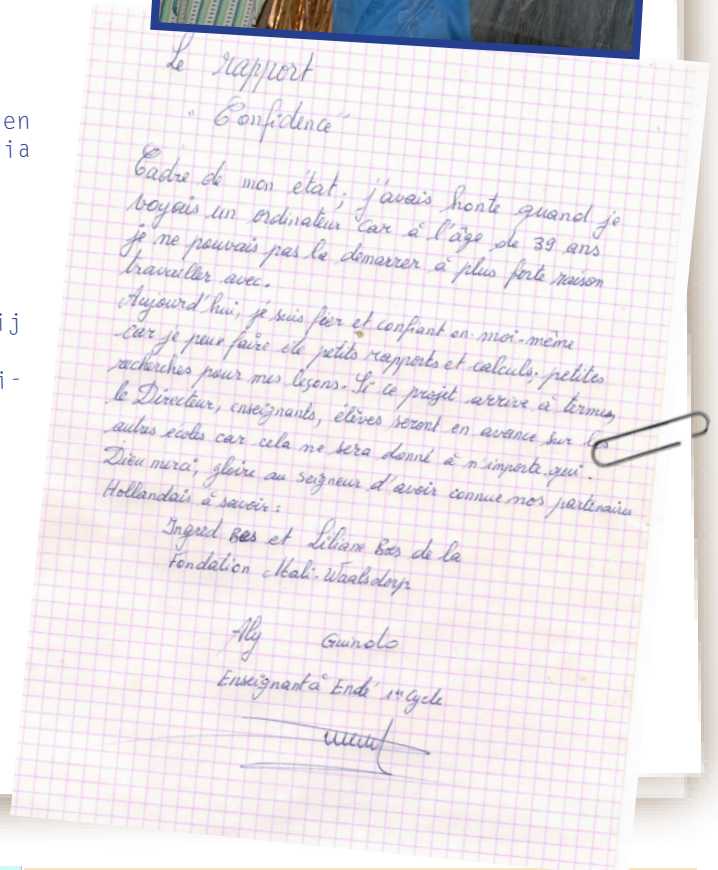 en
ia
ij
i-
Le rapport
"Confidence"
Cadre de mon état; j'avais honte quand je
voyais un ordinateur car à l'âge de 39 ans
je ne pouvais pas la demarrer à plus forte raison
travailler avec.
Aujourd'hui, je suis fier et confiant en-moi-même
car je peux faire de petits rapports et calculs; petites
recherches pour mes leçons. Si ce projet arrive à termes,
le Directeur, enseignants, élèves seront en avance sur les
autres ecoles car cela ne sera donné à n'importe qui.
Dieu merci, gloire au seigneur d'avoir connue nos partenaires
Hollandais à savoir:
Ingred Bos et Liliane Bos de la
Fondation Mali-Waalsdorp
Aly Guindo
Enseignant à Endé 1er Cycle